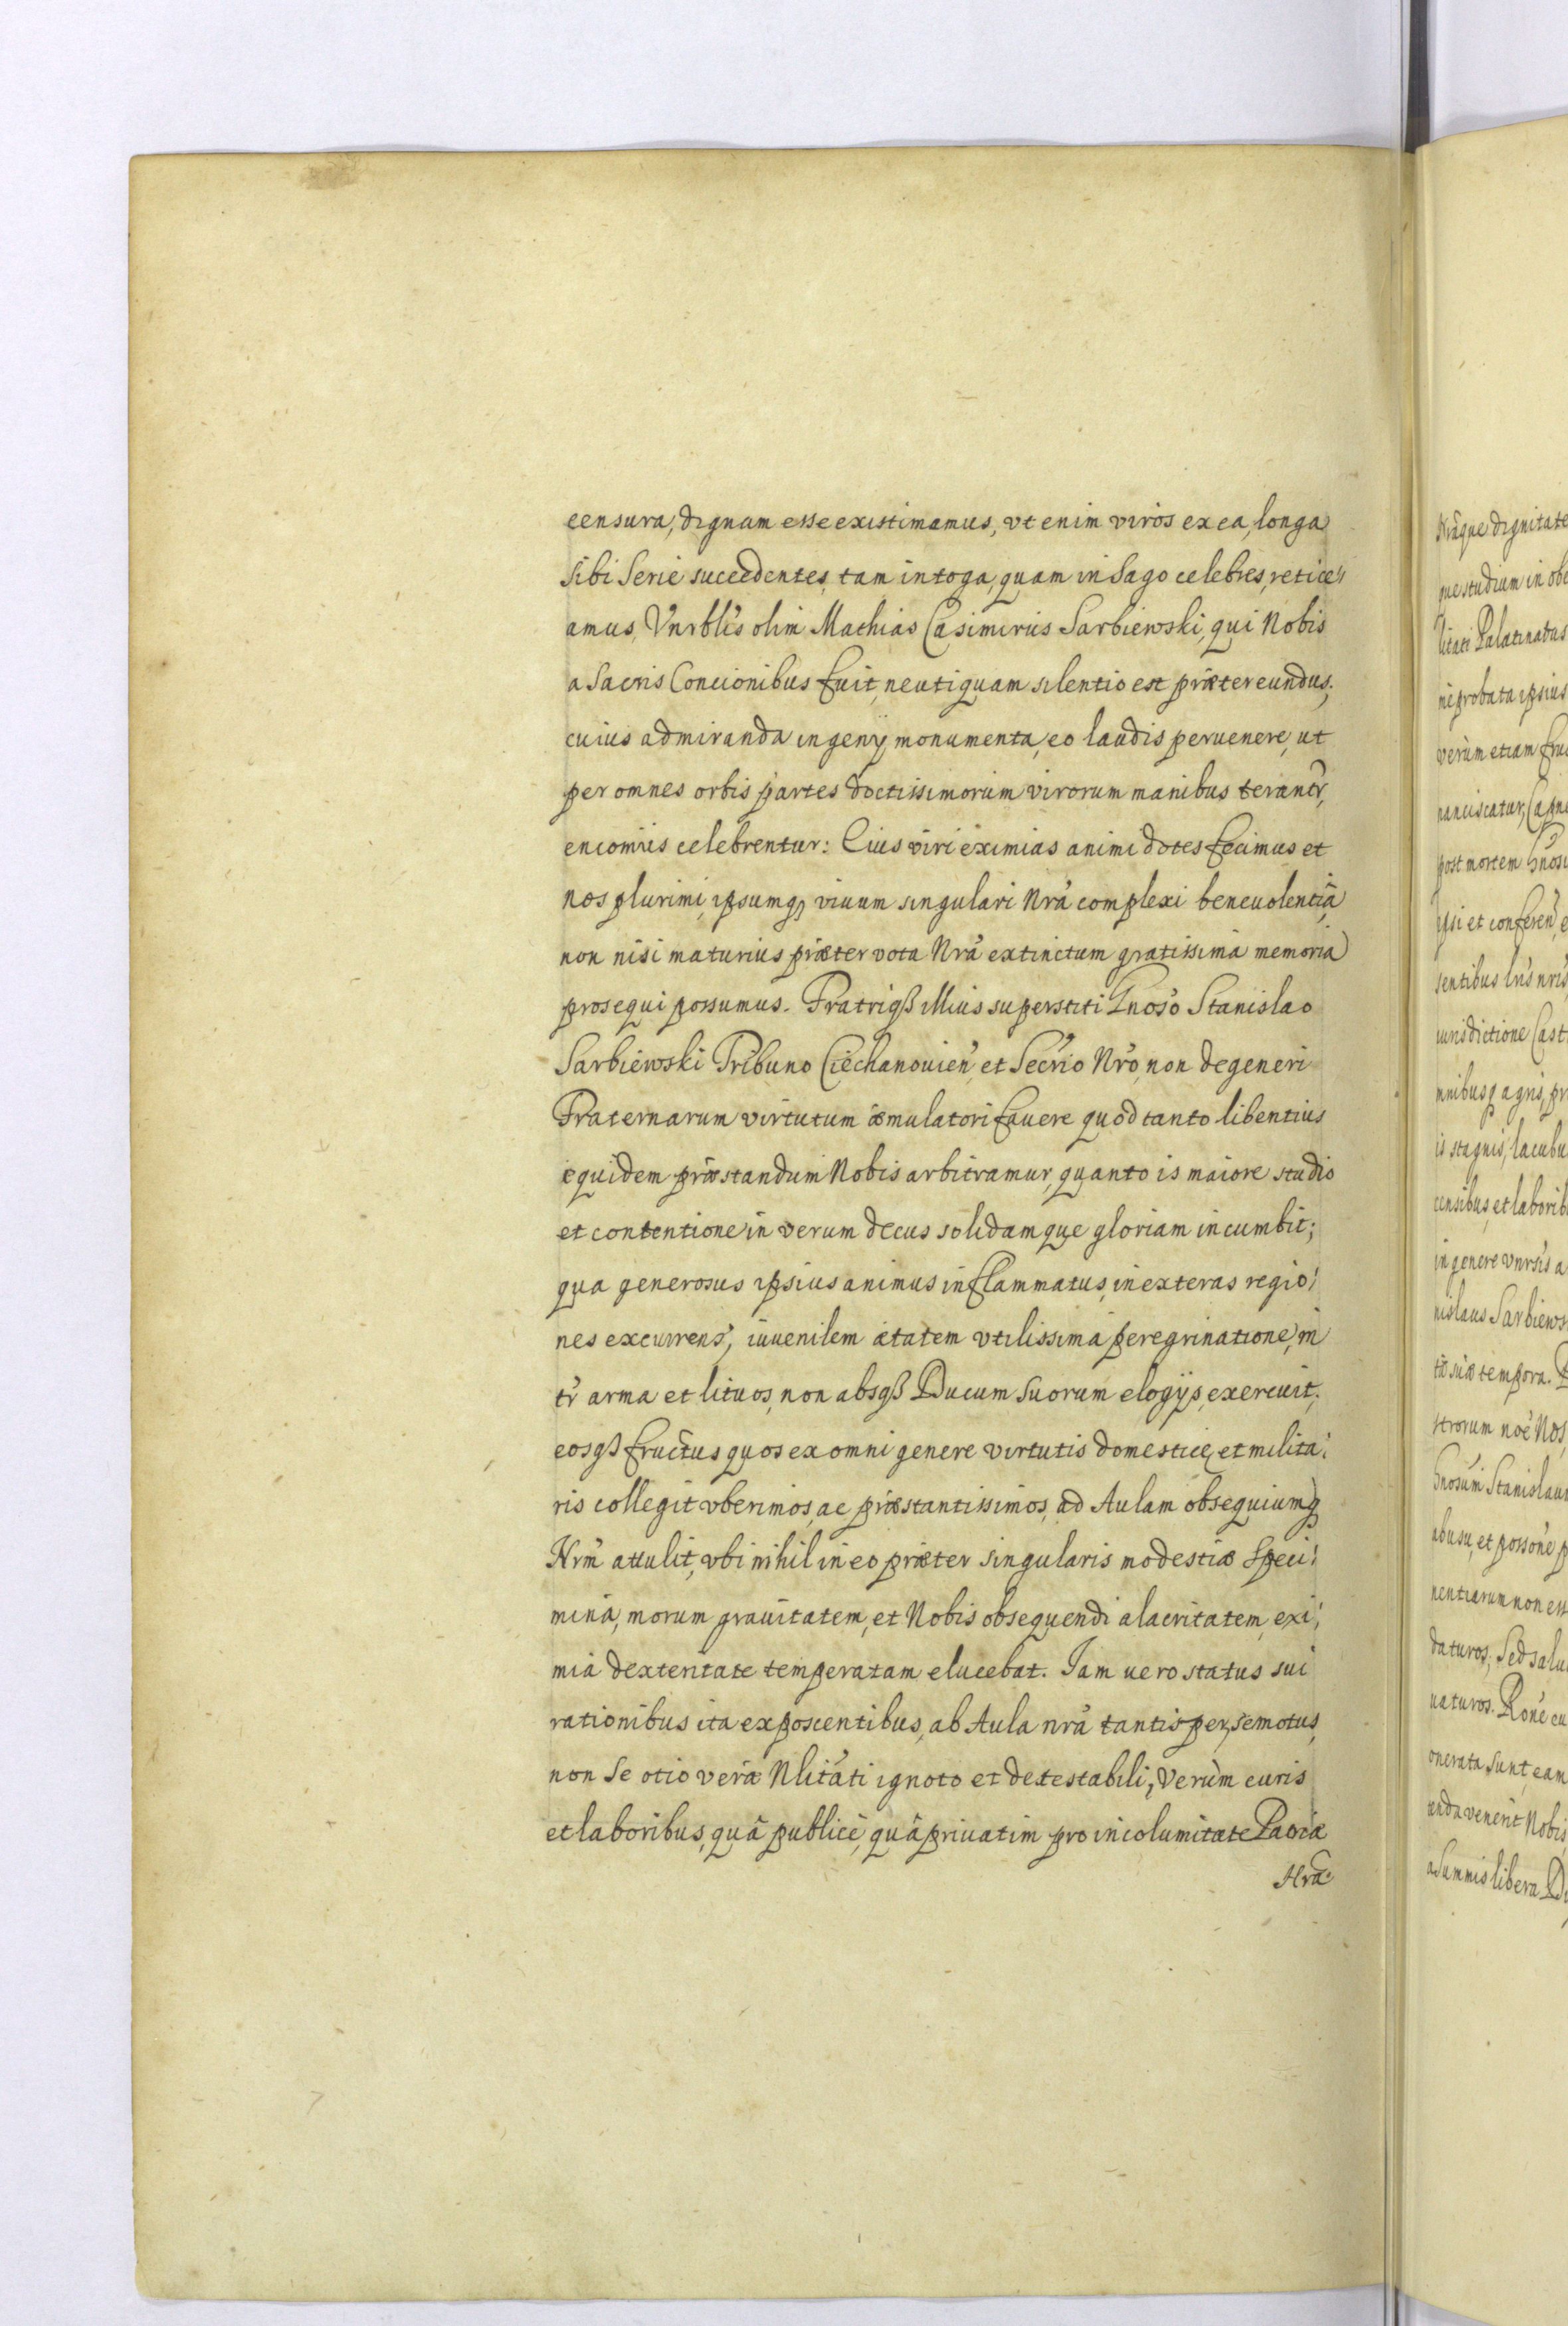 censura, dignam esse existimamus, vt enim viros ex ea, longa
sibi serie succedentes, tam in toga, quam in sago celebres, retice,,
amus, Vnrblis olim Mathias Casimirus Sarbiewski, qui Nobis
a Sacris Concionibus fuit, neutiquam silentio est prætereundus;
cuius admiranda ingenÿ monumenta, eo laudis peruenere, ut
per omnes orbis partes doctissimorum virorum manibus terantr,
encomiis celebrentur: Eius viri eximias animi dotes fecimus et
nos plurimi, ipsumq, viuum singulari Nrâ complexi beneuolentiâ
non nisi maturius præter vota Nrâ extinctum gratissima memoria
prosequi possumus. Fratriqß illius superstiti Gnoso Stanislao
Sarbiewski Tribuno Ciechanouien et Secrio Nro, non degeneri
Fraternarum virtutum æmulatori fauere quod tanto libentius
equidem præstandum Nobis arbitramur, quanto is maiore studio
et contentione in verum decus solidamque gloriam incumbit;
qua generosus ipsius animus inflammatus, in exteras regio,
nes excurrens, iuuenilem ætatem vtilissima peregrinatione, in
tr arma et lituos, non absqß Ducum suorum elogÿs, exercuit;
eosqß fructus quos ex omni genere virtutis domesticę et milita,
ris collegit vberimos, ac præstantissimos, ad Aulam obsequiumq
Nrm attulit, vbi nihil in eo præter singularis modestiæ speci,
mina, morum grauitatem, et Nobis obsequendi alacritatem, exi,
mia dexteritate temperatam elucebat. Iam uero status sui
rationibus ita exposcentibus, ab Aula nrâ tantisper, semotus,
non se otio vera Nlitati ignoto et detestabili, Verùm curis
et laboribus, quâ publicè, quâ priuatim pro incolumitate Patriæ
Nra
Nrâque dignitate
que studium in obe
litati Palatinatus
ni probata ipsius
verùm etiam fruc
nanciscatur, Capne
post mortem Gnosi
ipsi et conferen, e
sentibus lris nris
iurisdictione Cast
mnibusq agris, pr
is stagnis, lacubu
censibus, et laborib
in genere vnrsis a
nislaus Sarbiews
tæ suæ tempora.
strorum noe Nos,
Gnosum Stanislaum
ab usu, et possone p
nentiarum non ess
daturos, Sed salu
uaturos. Rone cu
onerata sunt eam
enda venerit Nobis
a Summis libera D